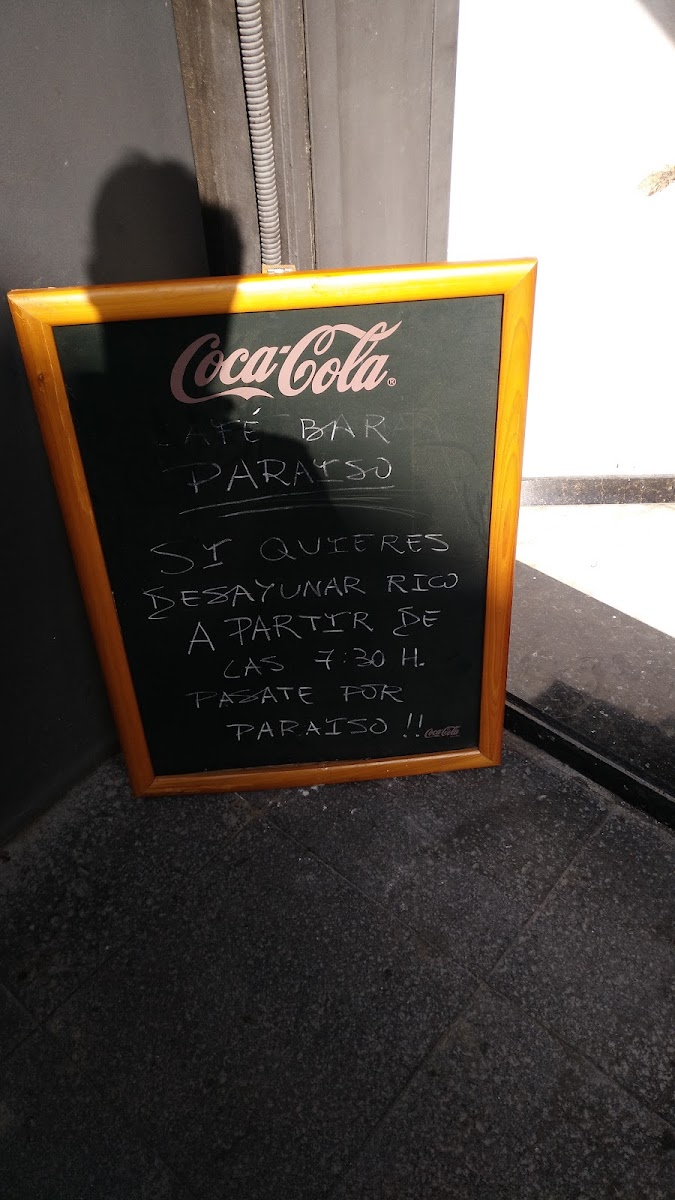 Coca-Cola®
CAFÉ BAR
PARAISO
SI QUIERES
DESAYUNAR RICO
A PARTIR DE
LAS 7:30 H.
PASATE POR
PARAISO !!
Coca-Cola